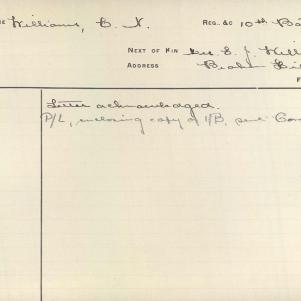 Williams, C. N. REG. &C 10th Ba
NEXT OF KIN Mrs. E. J. Will
ADDRESS Broken Hil
F
Letter acknowledged.
P/L, enclosing copy of I/B, sent Com